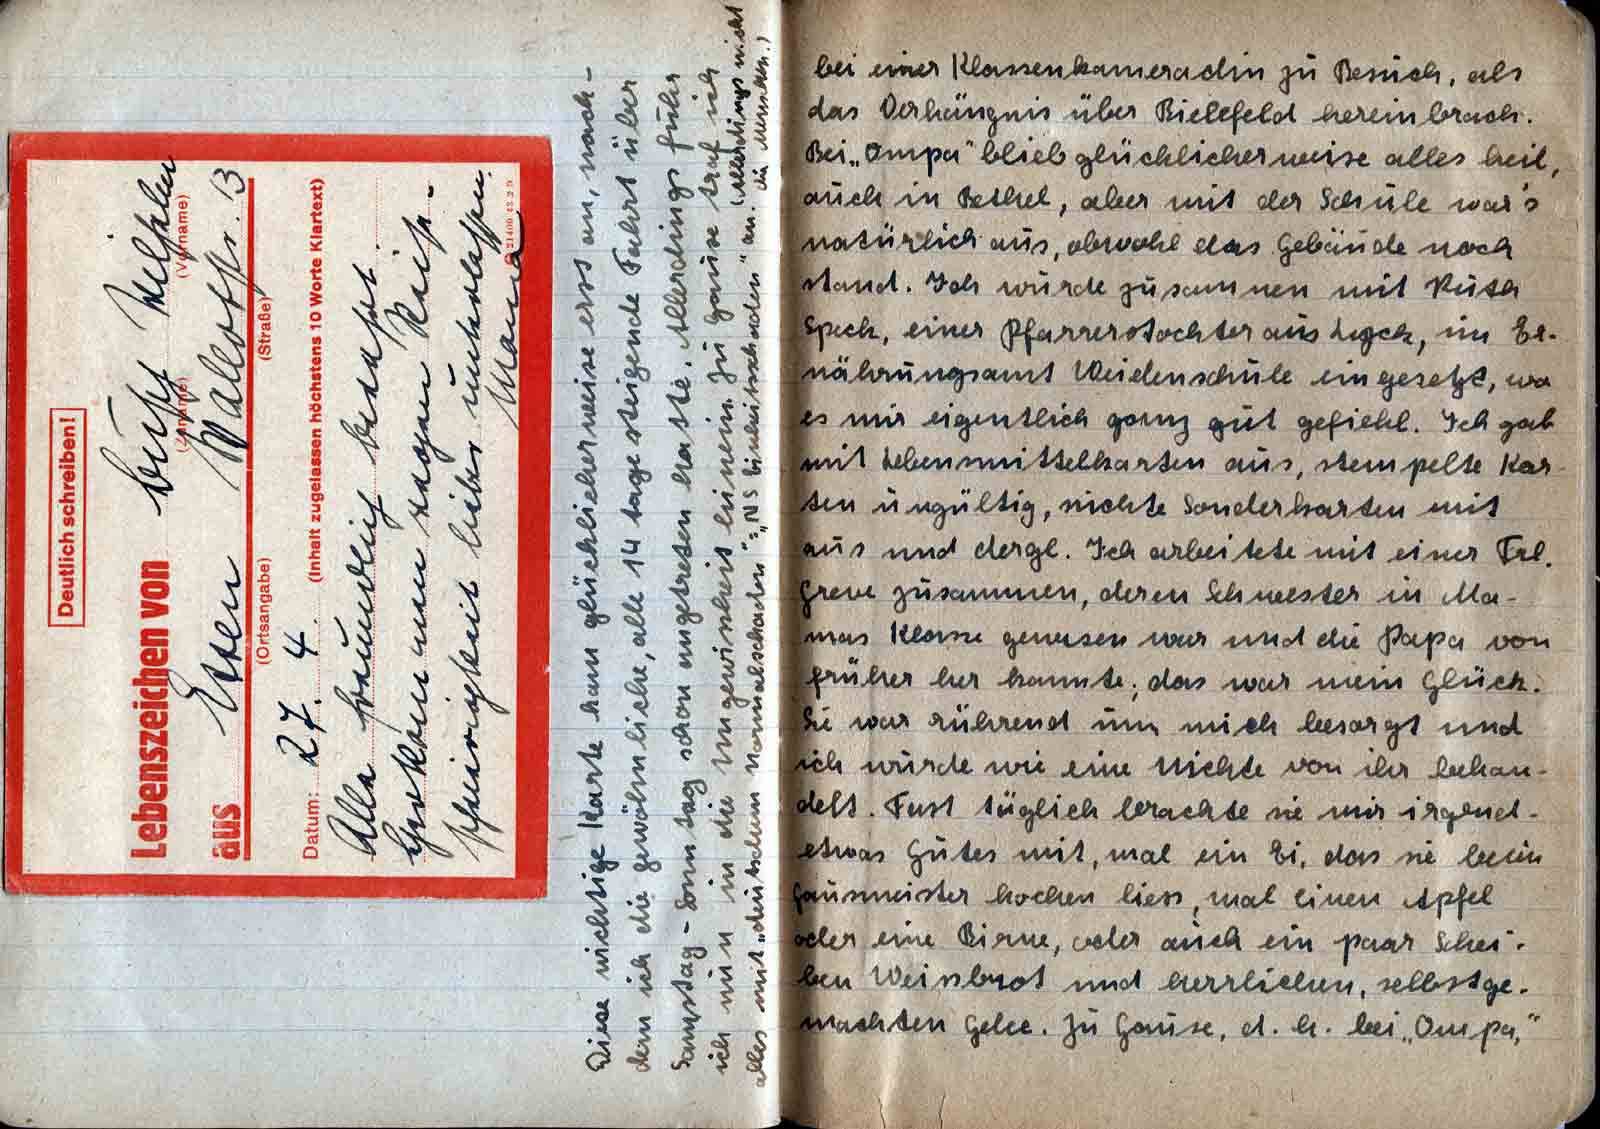 Deutlich schreiben!
Lebenszeichen von
(Zuname)
(Vorname)
aus Essen Mallottstr. 13
(Ortsangabe)
(Straße)
Datum: 27. 4. (Inhalt zugelassen höchstens 10 Worte Klartext)
Alle freundlich
unterlassen.
Mama
Diese wichtige Karte kam glücklicherweise erst an, nach-
dem ich die gewöhnliche, alle 14 tage steigende Fahrt über
Samstag-Sonntag schon angetreten hatte. Allerdings fuhr
ich nun in die Ungewissheit hinein. Zu Hause traf ich
alles mit „deutschem normalschaden" = „NS bis heitsschaden" an. (Allerdings nicht
die Menschen.)
bei einer Klassenkameradin zu Besuch, als
das Verhängnis über Bielefeld hereinbrach.
Bei „Ompa" blieb glücklicherweise alles heil,
auch in Bethel, aber mit der Schule war's
natürlich aus, obwohl das Gebäude noch
stand. Ich wurde zusammen mit Ruth
Speck, einer Pfarrerstochter aus Lyck, im Er-
nährungsamt Weidenschule eingesetzt, wo
es mir eigentlich ganz gut gefiehl. Ich gab
mit Lebensmittelkarten aus, stempelte Kar-
ten ungültig, richte Sonderkarten mit
aus und dergl. Ich arbeitete mit einer Frl.
Greve zusammen, deren Schwester in Ma-
mas Klasse gewesen war und die Papa von
früher her kannte; das war mein Glück.
Sie war rührend um mich besorgt und
ich wurde wie eine Nichte von ihr behan-
delt. Fast täglich brachte sie mir irgend-
etwas Gutes mit, mal ein Ei, das sie beim
Hausmeister kochen liess, mal einen Apfel
oder eine Birne, oder auch ein paar Schei-
ben Weissbrot und herrlichen, selbstge-
machten Gelee. Zu Hause, d. h. bei „Ompa,"